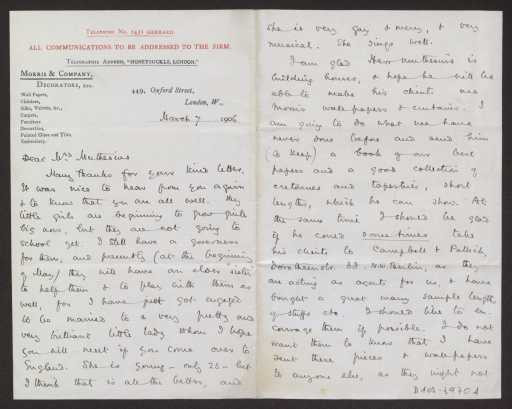 TELEPHONE No. 2431 GERRARD.
ALL COMMUNICATIONS TO BE ADDRESSED TO THE FIRM.
TELEGRAPHIC ADDRESS, "HONEYSUCKLE, LONDON."
MORRIS & COMPANY,
DECORATORS, LTD.
Wall Papers,
Chintzes,
Silks, Velvets, &c.,
Carpets,
Furniture
Decoration,
Painted Glass and Tiles,
Embroidery.
449, Oxford Street,
London, W.
March 7 1906
Dear Mrs Muthesius
Many thanks for your kind letter.
It was nice to hear from you again
& to know that you are all well. My
little girls are beginning to grow quite
big now, but they are not going to
school yet. I still have a governess
for them, and presently (at the beginning
of May) they will have an elder sister
to help them & to play with them as
well, for I have just got engaged
to be married to a very pretty and
very brilliant little lady whom I hope
you will meet if you come over to
England. She is young - only 25 - but
I think that is all the better, and
she is very gay & merry, & very
musical. She sings well.
I am glad Herr Muthesius is
building houses, & hope he will be
able to make his clients use
Morris wallpapers & curtains. I
am going to do what we have
never done before and send him
(to keep) a book of our best
papers and a good collection of
cretonnes and tapestries, short
lengths, which he can show. At
the same time I should be glad
if he could sometimes take
his clients to Campbell & Pullich,
Dorotheenstr. Berlin, as they
are acting as agents for us, & have
bought a great many sample lengths
of stuffs etc. I should like to en-
courage them if possible. I do not
want them to know that I have
sent these pieces & wallpapers
to anyone else, as they might not